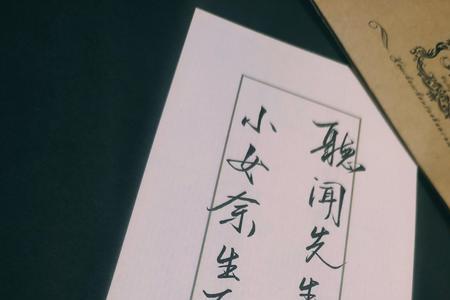 聽闻先生
小女奈生